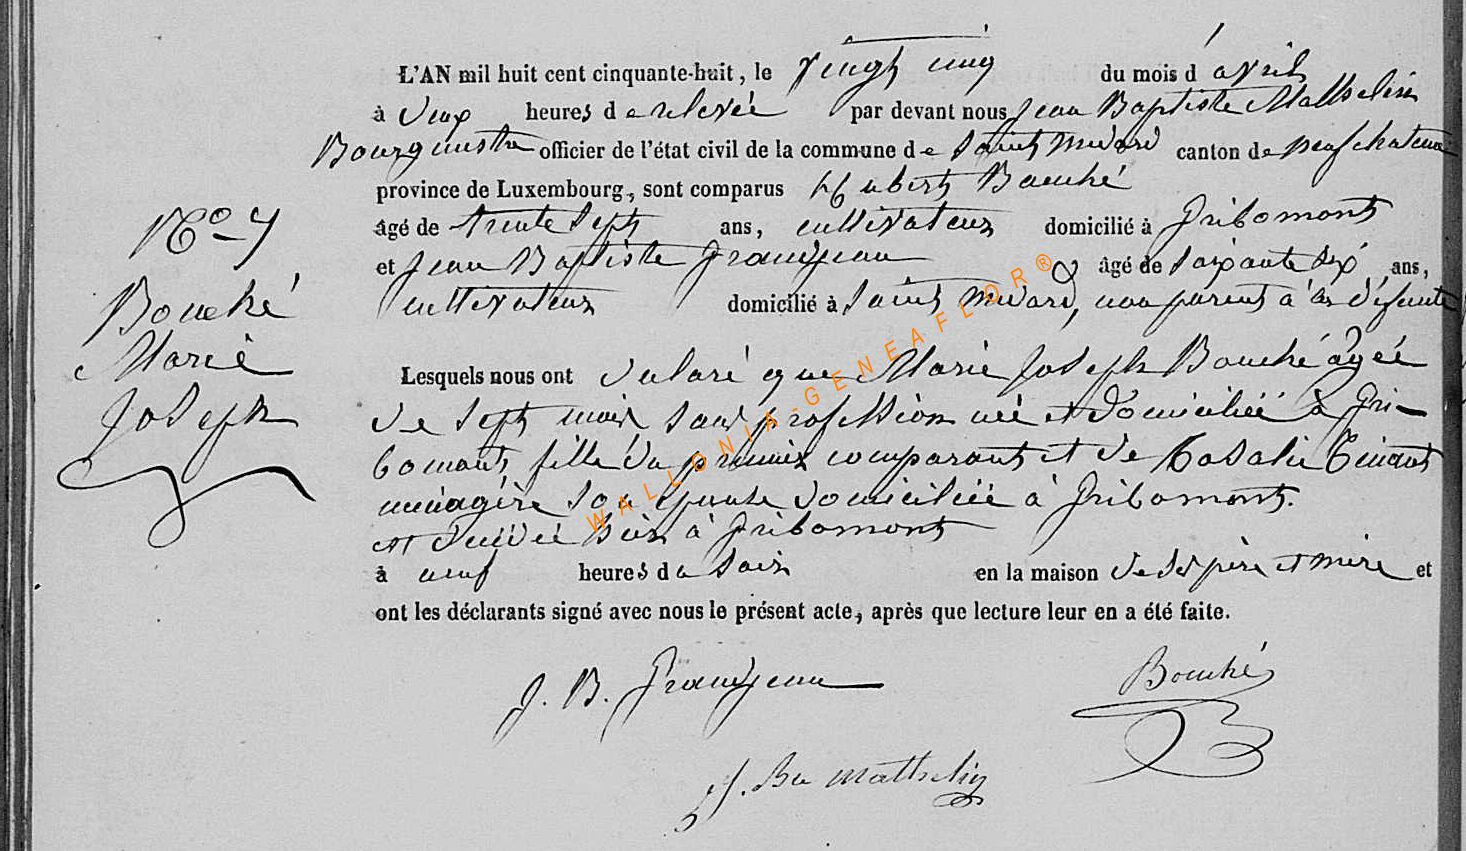 L'AN mil huit cent cinquante-huit, le vingt cinq du mois d'avril
à deux heures de relevée par devant nous Jean Baptiste Matthelin
Bourgmestre officier de l'état civil de la commune de Saint Médard canton de Neufchateau
province de Luxembourg, sont comparus Hubert Bouché
âgé de trente sept ans, cultivateur domicilié à Gribomont
et Jean Baptiste Grandjean âgé de soixante six ans,
cultivateur domicilié à Saint Médard, non parent à la défunte
Lesquels nous ont déclaré que Marie Joseph Bouché âgée
de sept mois sans profession née et domiciliée à Gri-
bomont, fille du premier comparant et de Rosalie
ménagère son épouse domiciliée à Gribomont.
est décédée hier à Gribomont
à neuf heures du soir en la maison de ses père et mère et
ont les déclarants signé avec nous le présent acte, après que lecture leur en a été faite.
N° 7
Bouché
Marie
Joseph
J. B. Grandjean
Bouché
J. Bte Matthelin
WALLONIA-GENEAFLOR®